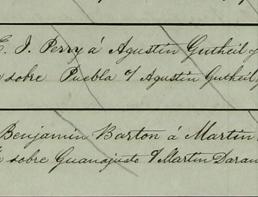 E. J. Perry á Agustin Gutheil y
sobre Puebla c/ Agustin Gutheil y
Benjamin Barton á Martin
sobre Guanajuato c/ Martin Daran